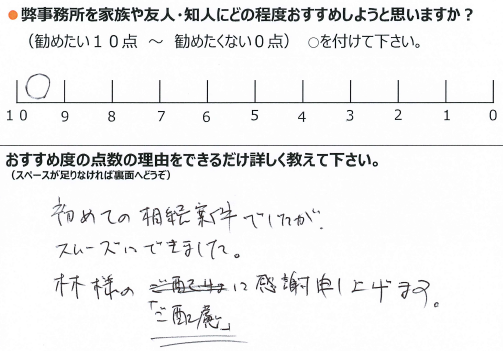 ●弊事務所を家族や友人・知人にどの程度おすすめしようと思いますか？
（勧めたい１０点 ～ 勧めたくない０点） ○を付けて下さい。
10 9 8 7 6 5 4 3 2 1 0
おすすめ度の点数の理由をできるだけ詳しく教えて下さい。
（スペースが足りなければ裏面へどうぞ）
初めての相続案件でしたが、
スムーズにできました。
林様の に感謝申し上げます。
「ご配慮」